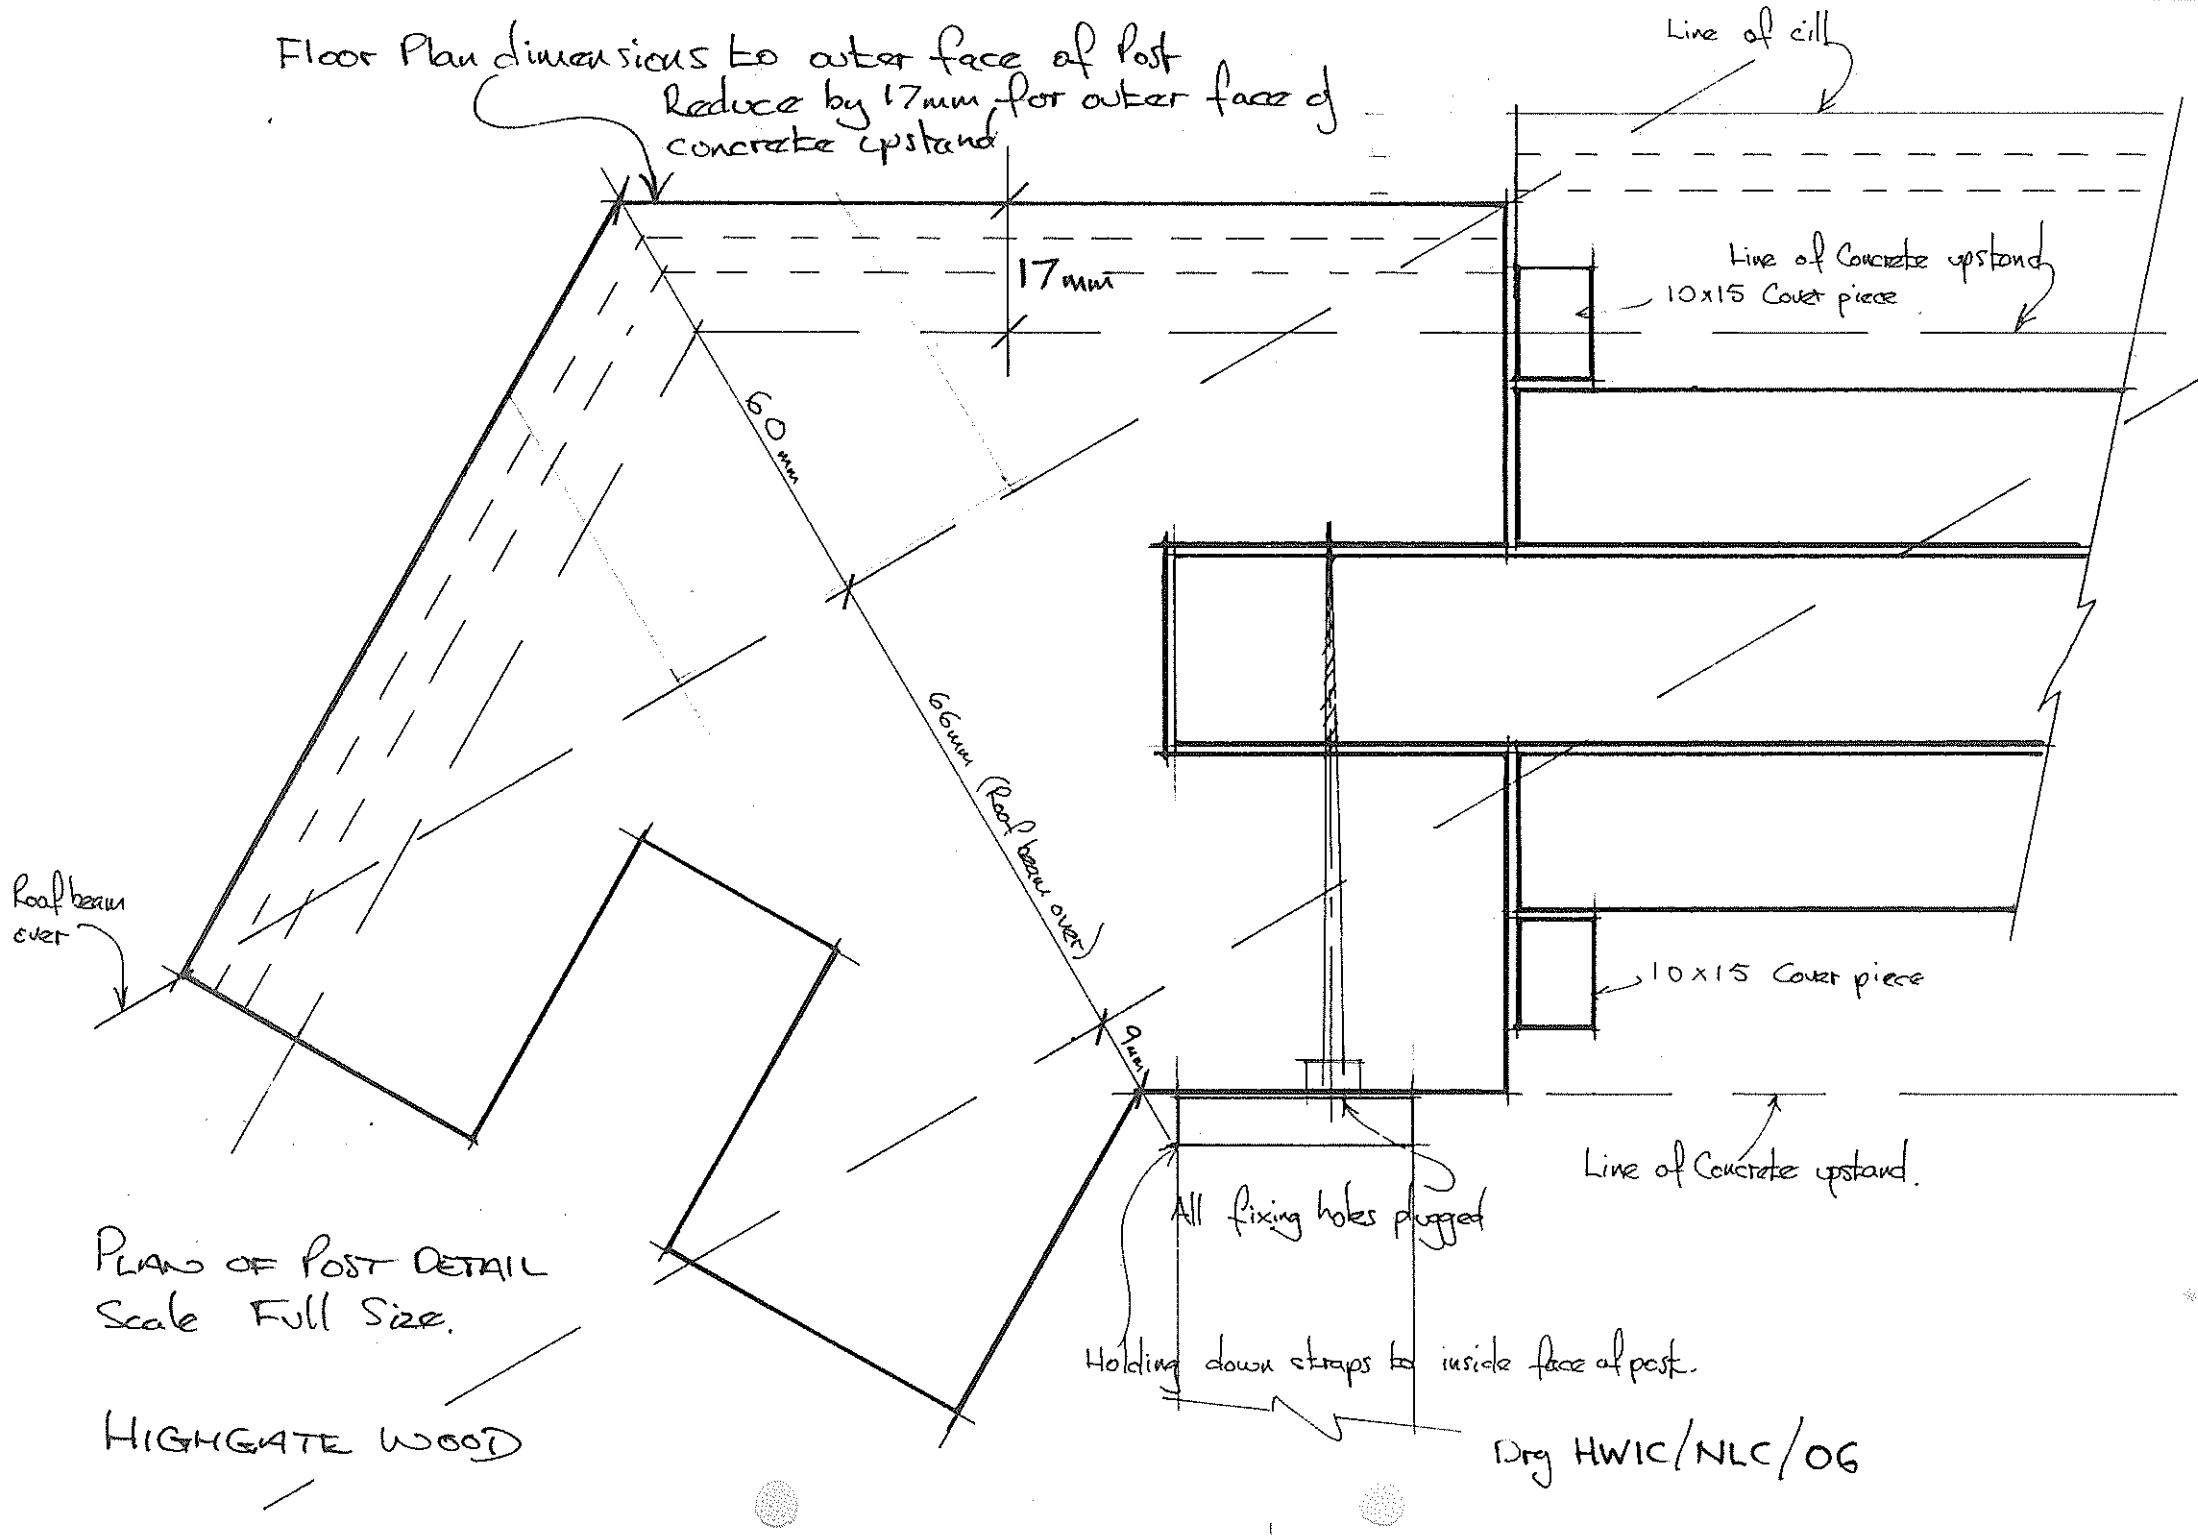 Floor Plan dimensions to outer face of Post
Reduce by 17mm for outer face of
concrete upstand
Line of cill
17mm
Line of Concrete upstand
10x15 Cover piece
60mm
66mm (Roof beam over)
9mm
Roof beam
over
10x15 Cover piece
Line of Concrete upstand.
All fixing holes plugged
Holding down straps to inside face of post.
PLAN OF POST DETAIL
Scale Full Size.
HIGHGATE WOOD
Drg HWIC/NLC/06